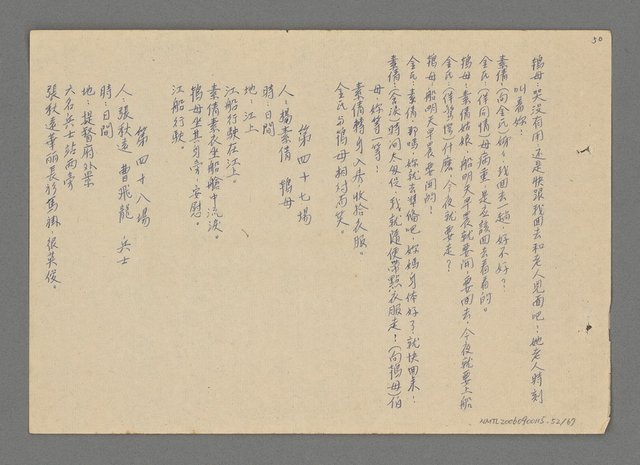 50
鴇母：哭没有用，还是快跟我回去和老人見面吧！她老人時刻
叫着你！
素倩：（向金氏）妳！我回去一趟，好不好？
金氏：（佯同情）母病重，是应該回去看看的。
鴇母：素倩姑娘，船明天早晨就要開，要回去，今夜就要上船
金氏：（佯驚愕）什麽，今夜就要走？
鴇母：船明天早晨要開的！
金氏：素倩，那嗎，妳就去準備吧，妳媽身体好了就快回来！
素倩：（含淚）時间太匆促，我就隨便帶點衣服走！（向鴇母）伯
母，你等一等！
素倩轉身入房收拾衣服。
金氏与鴇母相对而笑。
第四十七場
人：楊素倩 鴇母
時：日間
地：江上
江船行駛在江上。
素倩素衣坐船艙中流淚。
鴇母坐其身旁，安慰。
江船行駛
第四十八場
人：張秋遠 曹飛龍 兵士
時：日間
地：提督府外景
六名兵士站两旁
張秋遠華丽長衫馬掛，很英俊。
NMTL20060900115-52/67